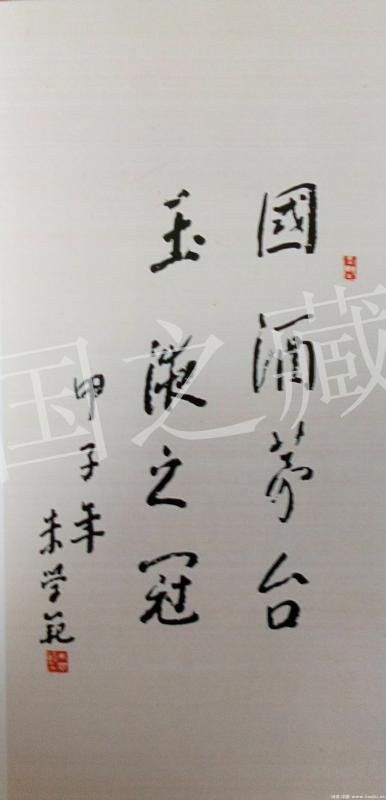 國酒茅台
玉液之冠
甲子年
朱学範
国之藏